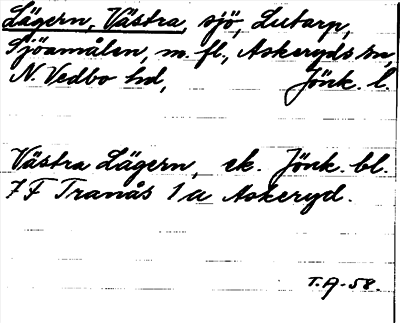 Lägern, Västra, sjö, Lutarp,
Sjöamålen, m. fl., Askeryds sn,
N. Vedbo hd, Jönk. l.
Västra Lägern, ek. Jönk. bl.
7 F Tranås 1 a Askeryd.
T.A-58.